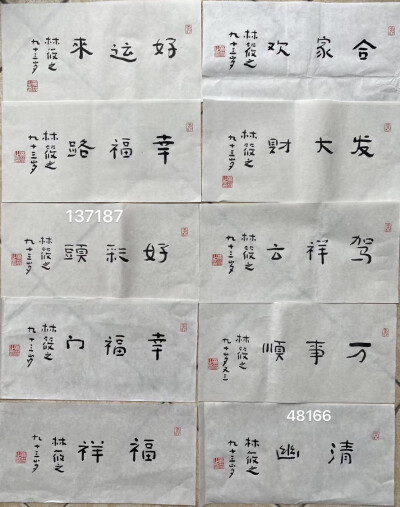 好运來
林筱之
九十三岁
合家欢
林筱之
九十三岁
幸福路
林筱之
九十三岁
发大財
林筱之
九十三岁
137187
好彩頭
林筱之
九十三岁
驾祥云
林筱之
九十三岁
幸福门
林筱之
九十三岁
万事順
林筱之
九十岁又三
福祥
林筱之
九十三岁
48166
清幽
林筱之
九十三岁